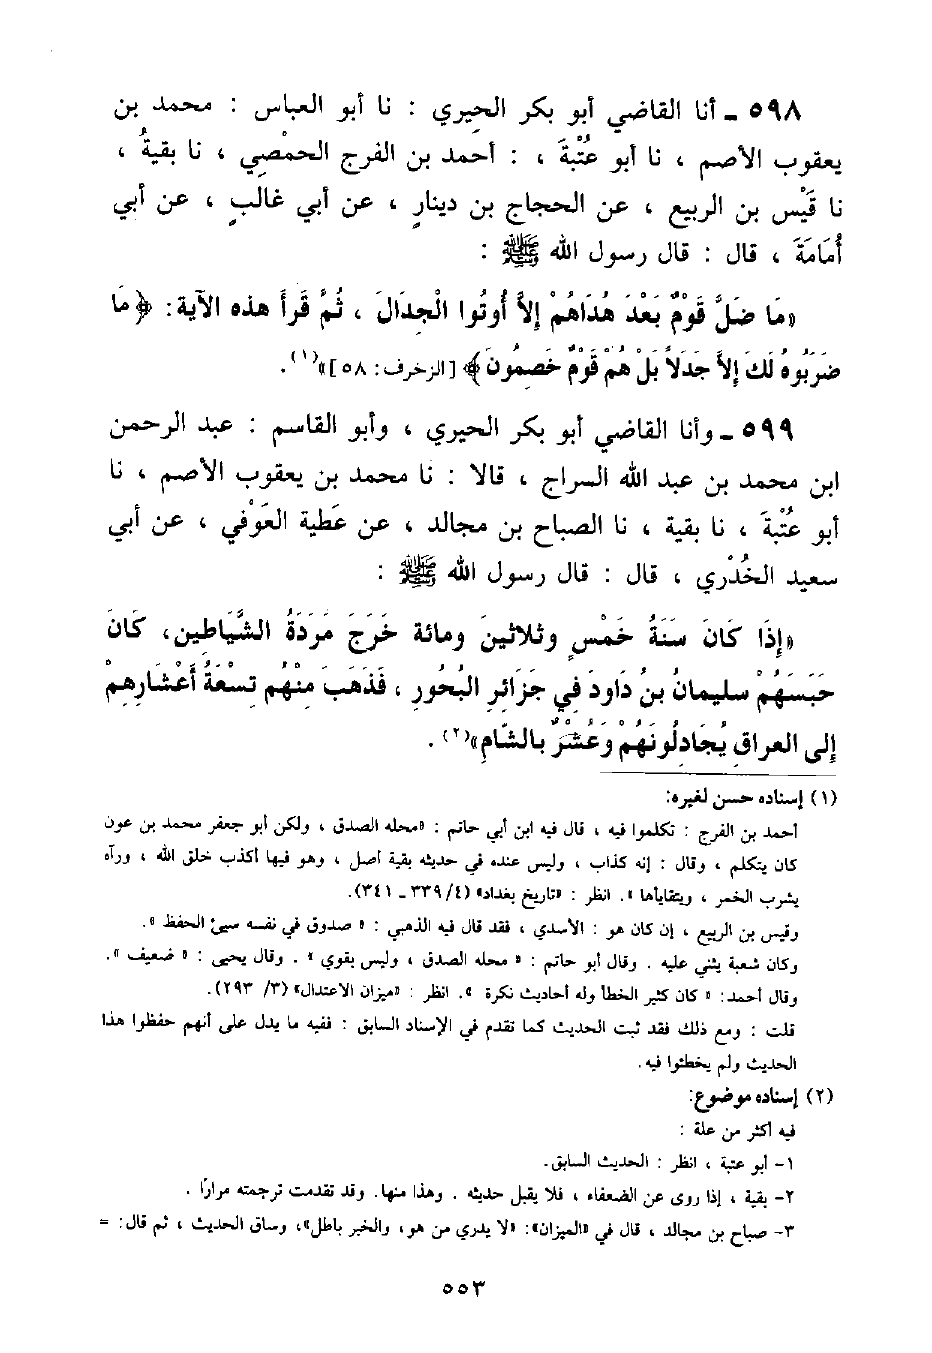 ٥٩٨ ـ أنا القاضي أبو بكر الحِيري : نا أبو العباس : محمد بن
يعقوب الأصم ، نا أبو عُتْبةَ ، : أحمد بن الفرج الحمْصي ، نا بقيةُ ،
نا قَيْس بن الربيع ، عن الحجاج بن دينارٍ ، عن أبي غالبٍ ، عن أبي
أُمَامَةَ ، قال : قال رسول الله ﷺ :
«مَا ضَلَّ قَوْمٌ بَعْدَ هُدَاهُمْ إِلاَّ أُوتُوا الْجِدَالَ ، ثُمَّ قَرَأَ هذه الآية: ﴿مَا
ضَرَبُوهُ لَكَ إِلاَّ جَدَلاً بَلْ هُمْ قَوْمٌ خَصِمُونَ﴾ [الزخرف: ٥٨]»(١).
٥٩٩ ـ وأنا القاضي أبو بكر الحيري ، وأبو القاسم : عبد الرحمن
ابن محمد بن عبد الله السراج ، قالا : نا محمد بن يعقوب الأصم ، نا
أبو عُتْبةَ ، نا بقية ، نا الصباح بن مجالد ، عن عَطية العَوْفي ، عن أبي
سعيد الخُدْري ، قال : قال رسول الله ﷺ :
«إِذَا كَانَ سَنَةُ خَمْسٍ وثلاثينَ ومائة خَرَجَ مَرَدَةُ الشَّيَاطِين، كَانَ
حَبَسَهُمْ سليمانُ بنُ دَاودَ فِي جَزَائِرِ البُحُورِ ، فَذَهَبَ مِنْهُم تِسْعَةُ أَعْشَارِهِمْ
إِلى العراقِ يُجَادِلُونَهُمْ وَعُشْرٌ بالشَّامِ»(٢) .
(١) إسناده حسن لغيره:
أحمد بن الفرج : تكلموا فيه ، قال فيه ابن أبي حاتم : «محله الصدق ، ولكن أبو جعفر محمد بن عون
كان يتكلم ، وقال : إنه كذاب ، وليس عنده في حديثه بقية أصل ، وهو فيها أكذب خلق الله ، ورآه
يشرب الخمر ، ويتقايأها ». انظر : «تاريخ بغداد» (٤/ ٣٣٩ ـ ٣٤١).
وقيس بن الربيع ، إن كان هو : الأسدي ، فقد قال فيه الذهبي : « صدوق في نفسه سيئ الحفظ ».
وكان شعبة يثني عليه . وقال أبو حاتم : « محله الصدق ، وليس بقوي » . وقال يحيى : « ضعيف ».
وقال أحمد: « كان كثير الخطأ وله أحاديث نكرة ». انظر : «ميزان الاعتدال» (٣/ ٢٩٣).
قلت : ومع ذلك فقد ثبت الحديث كما تقدم في الإسناد السابق : ففيه ما يدل على أنهم حفظوا هذا
الحديث ولم يخطئوا فيه.
(٢) إسناده موضوع:
فيه أكثر من علة :
١- أبو عتبة ، انظر : الحديث السابق.
٢- بقية ، إذا روى عن الضعفاء ، فلا يقبل حديثه . وهذا منها. وقد تقدمت ترجمته مرارًا .
٣- صباح بن مجالد ، قال في «الميزان»: «لا يدري من هو، والخبر باطل»، وساق الحديث ، ثم قال: =
٥٥٣